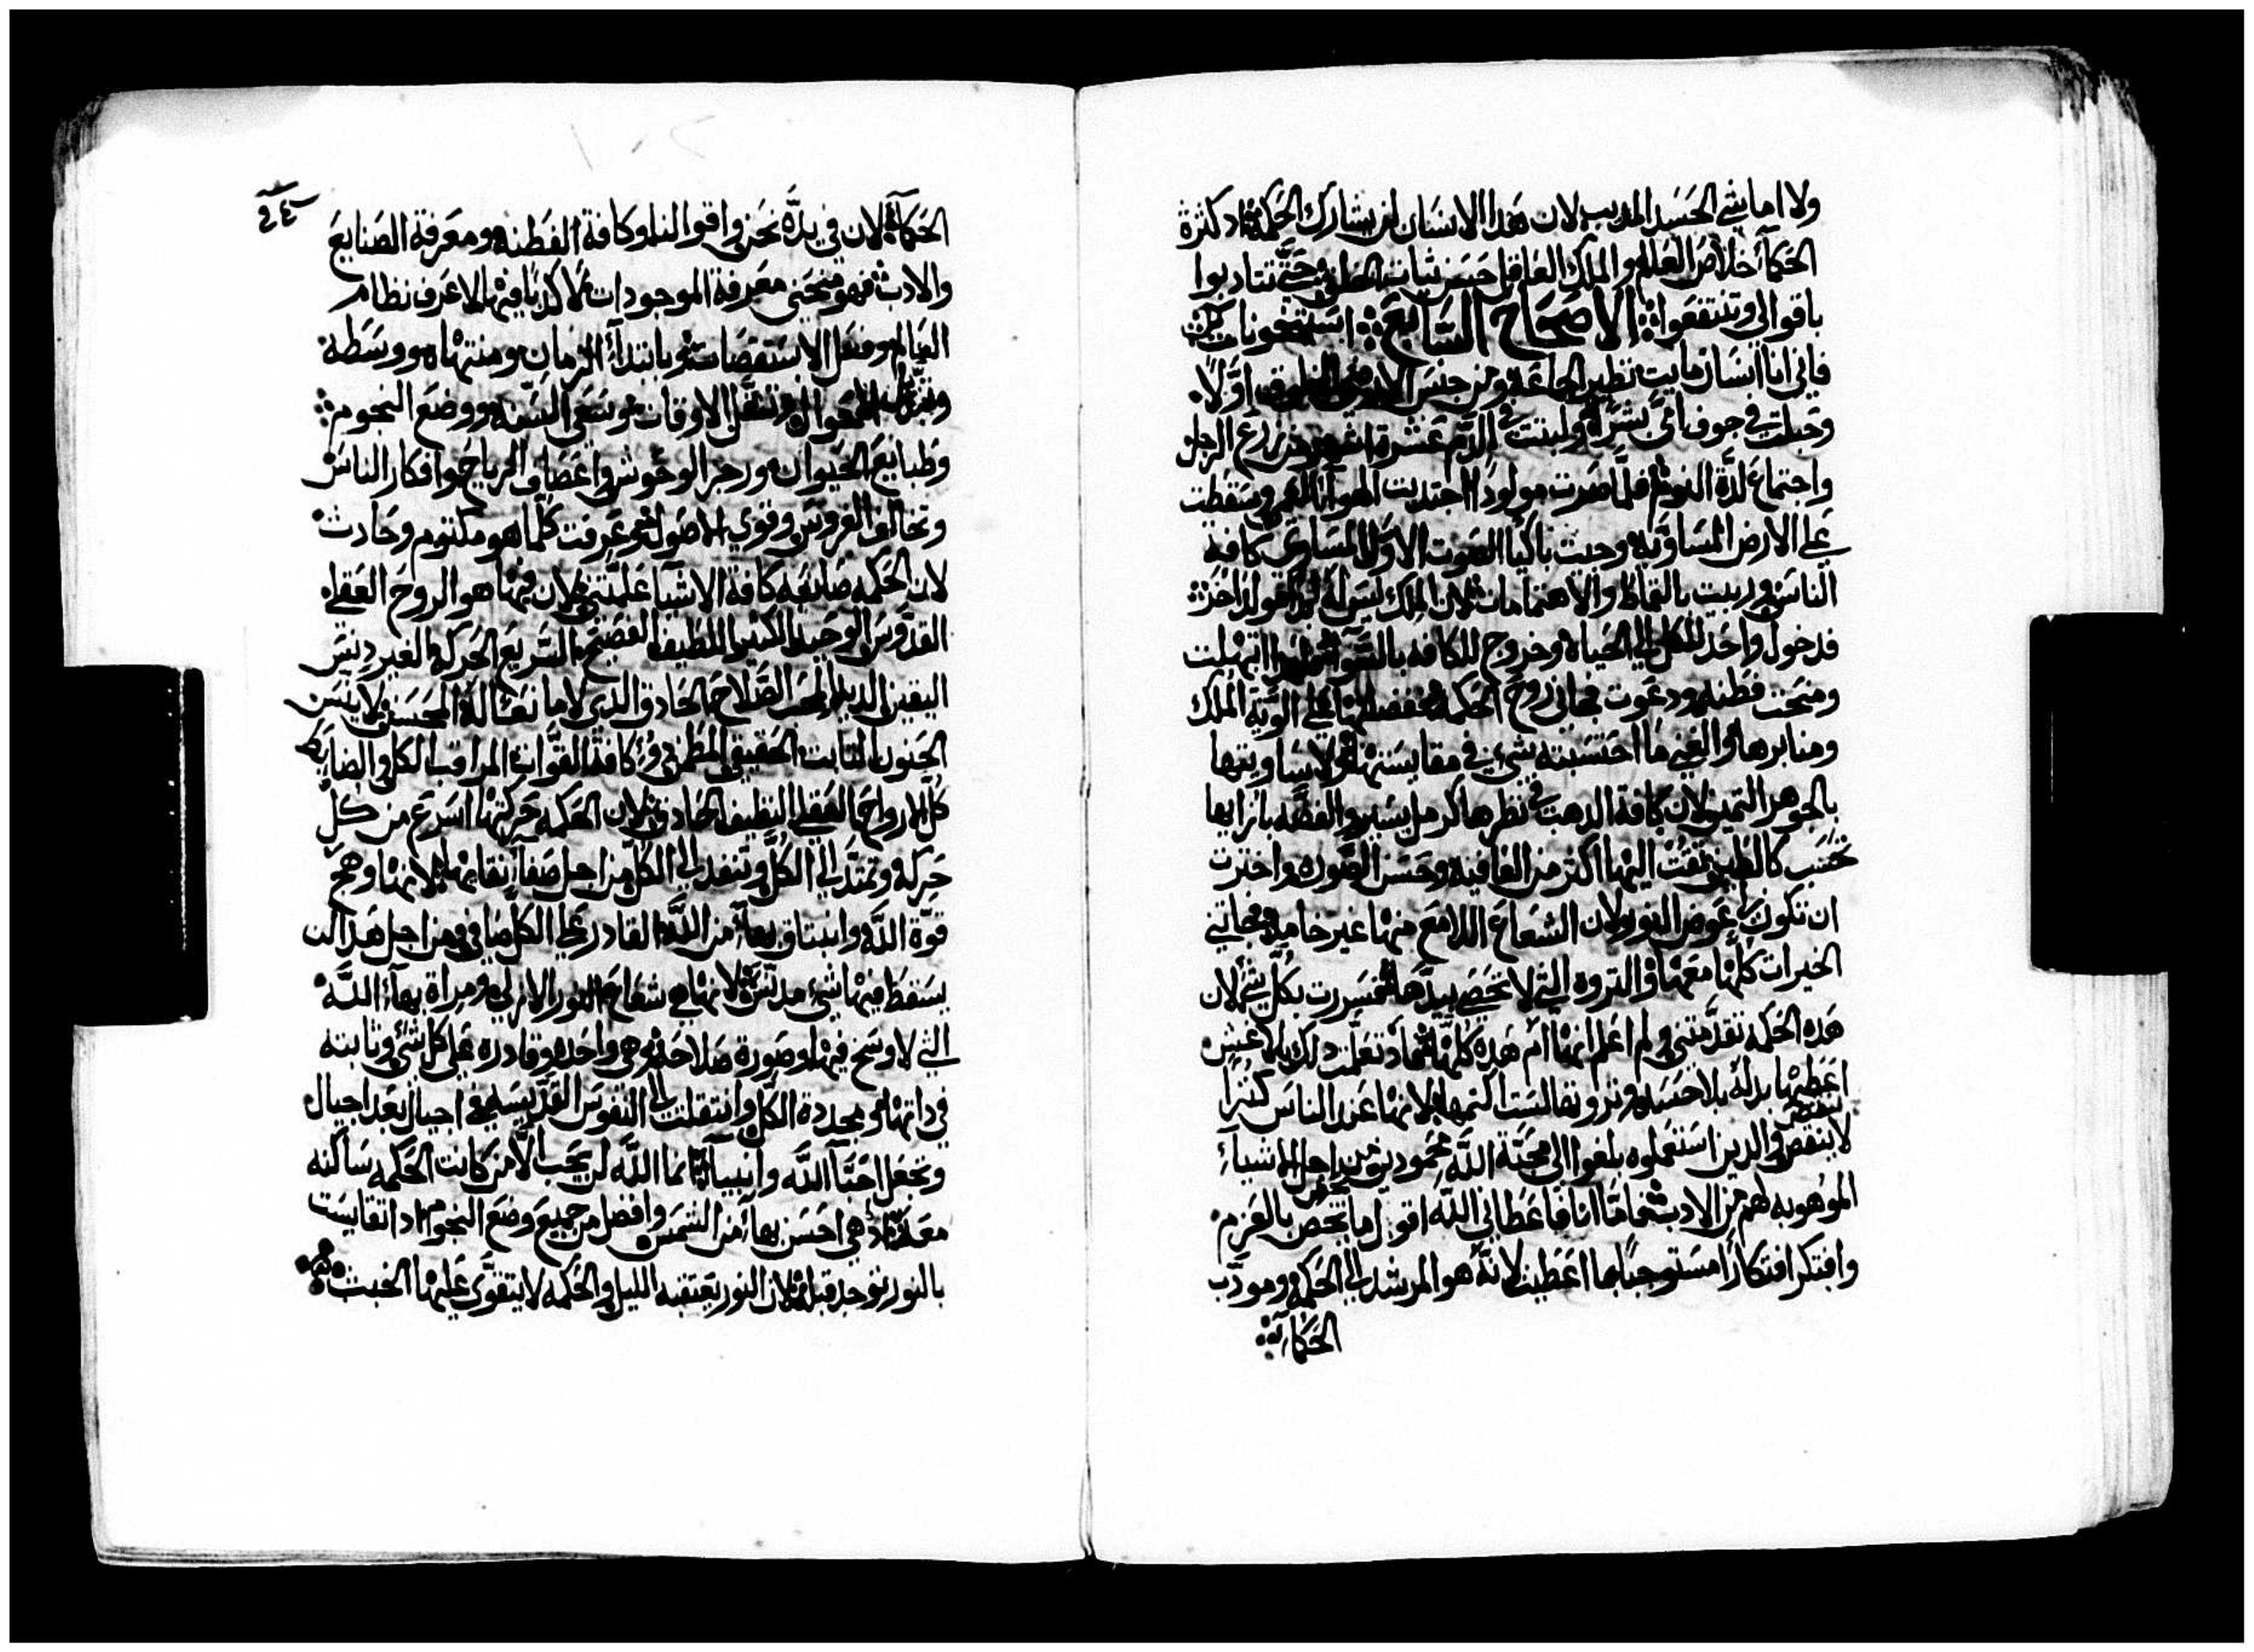 ولا اماشي الحسد المديب لان هدا الانسان لن يشارك الحكمة اد كثرة
الحكما خلاص العالم والملك العاقل حسن ثبات حتى تتادبوا
باقوالي وتنتفعوا الاصحاح السابع
فاني انا انسان مايت نظير الجماعة ومن جنس الارضي المخلوق اولا
وجبلت في جوف امي بشرا ولبثت في الدم عشرة اشهر من زرع الرجل
واجتماع لدة النوم فلما صرت مولودا اجتدبت الهوا العام وسقطت
على الارض المساويه وجيت باكيا الصوت الاول المساوي كافة
الناس وربيت بالقماط والاهتمامات لان الملك ليس له اخر
فدخول واحد للكل الى الحياه وخروج للكافه بالسوا ابتهلت
ومنحت فطنه ودعوت فجاني روح الحكمة ففضلتها على الوية الملك
ومنابرها والغنى ما احتسبته شي في مقايستها ولا ساويتها
بالجوهر التمين لان كافة الدهب في نظرها كرمل يسير والفضه بازايها
تحتسب كالطين تقت اليها اكتر من العافيه وحسن الصوره واخترت
ان تكون لي عوض النور لان الشعاع اللامع منها غير خامد فجاتني
الخيرات كلها معها والتروه التي لا تحصى بيدها فسررت بكل شي لان
هده الحكمه تقدمتني ولم اعلم انها ام هده كلها فماد تعلمت دلك بلا غش
اعطيتها بدله بلا حسد وتروتها لست اكتمها لانها عند الناس كنزا
لا ينقص والدين استعملوه بلغوا الى محبة الله محمودين من اجل الاشياء
الموهوبه لهم من الادب فاما انا فاعطاني الله اقول ما يخص بالعزم
وافتكر افتكارا مستوجبا بما اعطيت لانه هو المرشد الى الحكمه ومودب
الحكماء
الحكماء لان في يده نحن واقوالنا وكافة الفطنه ومعرفة الصنايع
والادب فهو منحني معرفة الموجودات لا كدبا فيها لاعرف نظام
العالم وفعل الاستقصات وابتداء الزمان ومنتهاه ووسطه
الاحوال وتنقل الاوقات وسعى السنه ووضع النجوم
وطبايع الحيوان ورجر الوحوش واعصاف الرياح وافكار الناس
وتخالف الغروس وقوي الاصول وعرفت كلما هو مكتوم وحادث
لان الحكمه صانعه كافة الاشيا علمتني لان فيها هو الروح العقلي
القدوس الوحيد الكتير اللطيف الفصيح السريع الحركه الغير دنس
اليقين الصلاح الحاد الدي لا مانع له المحسن
التابت الحقيقي المطمن دو كافة القوات المراقب الكل والضابط
كل الارواح العقلي النظيف الحادق لان الحكمه حركتها اسرع من كل
حركه وتمتد الى الكل وتنفد الى الكل من اجل صفا نقايها لانها وهج
قوة الله وانبتاق بها من الله القادر على الكل صافي فمن اجل هدا لن
يسقط فيها شي مدنس لانها هي شعاع النور الازلي ومراة بهاء الله
التي لا وسخ فيها وصورة صلاحه وهي واحده وقادره على كل شي وثابته
في داتها ومجددة الكل وانتقلت الى النفوس القديسه في اجيال بعد اجيال
وتجعل احبا الله وانبيآ انما الله لن يحب الا من كانت الحكمه ساكنه
معه اد هي احسن بهاء من الشمس وافضل من جميع وضع النجوم اد اتقايست
بالنور توجد قبله لان النور يعتقبه الليل والحكمه لا يتقوى عليها الخبث